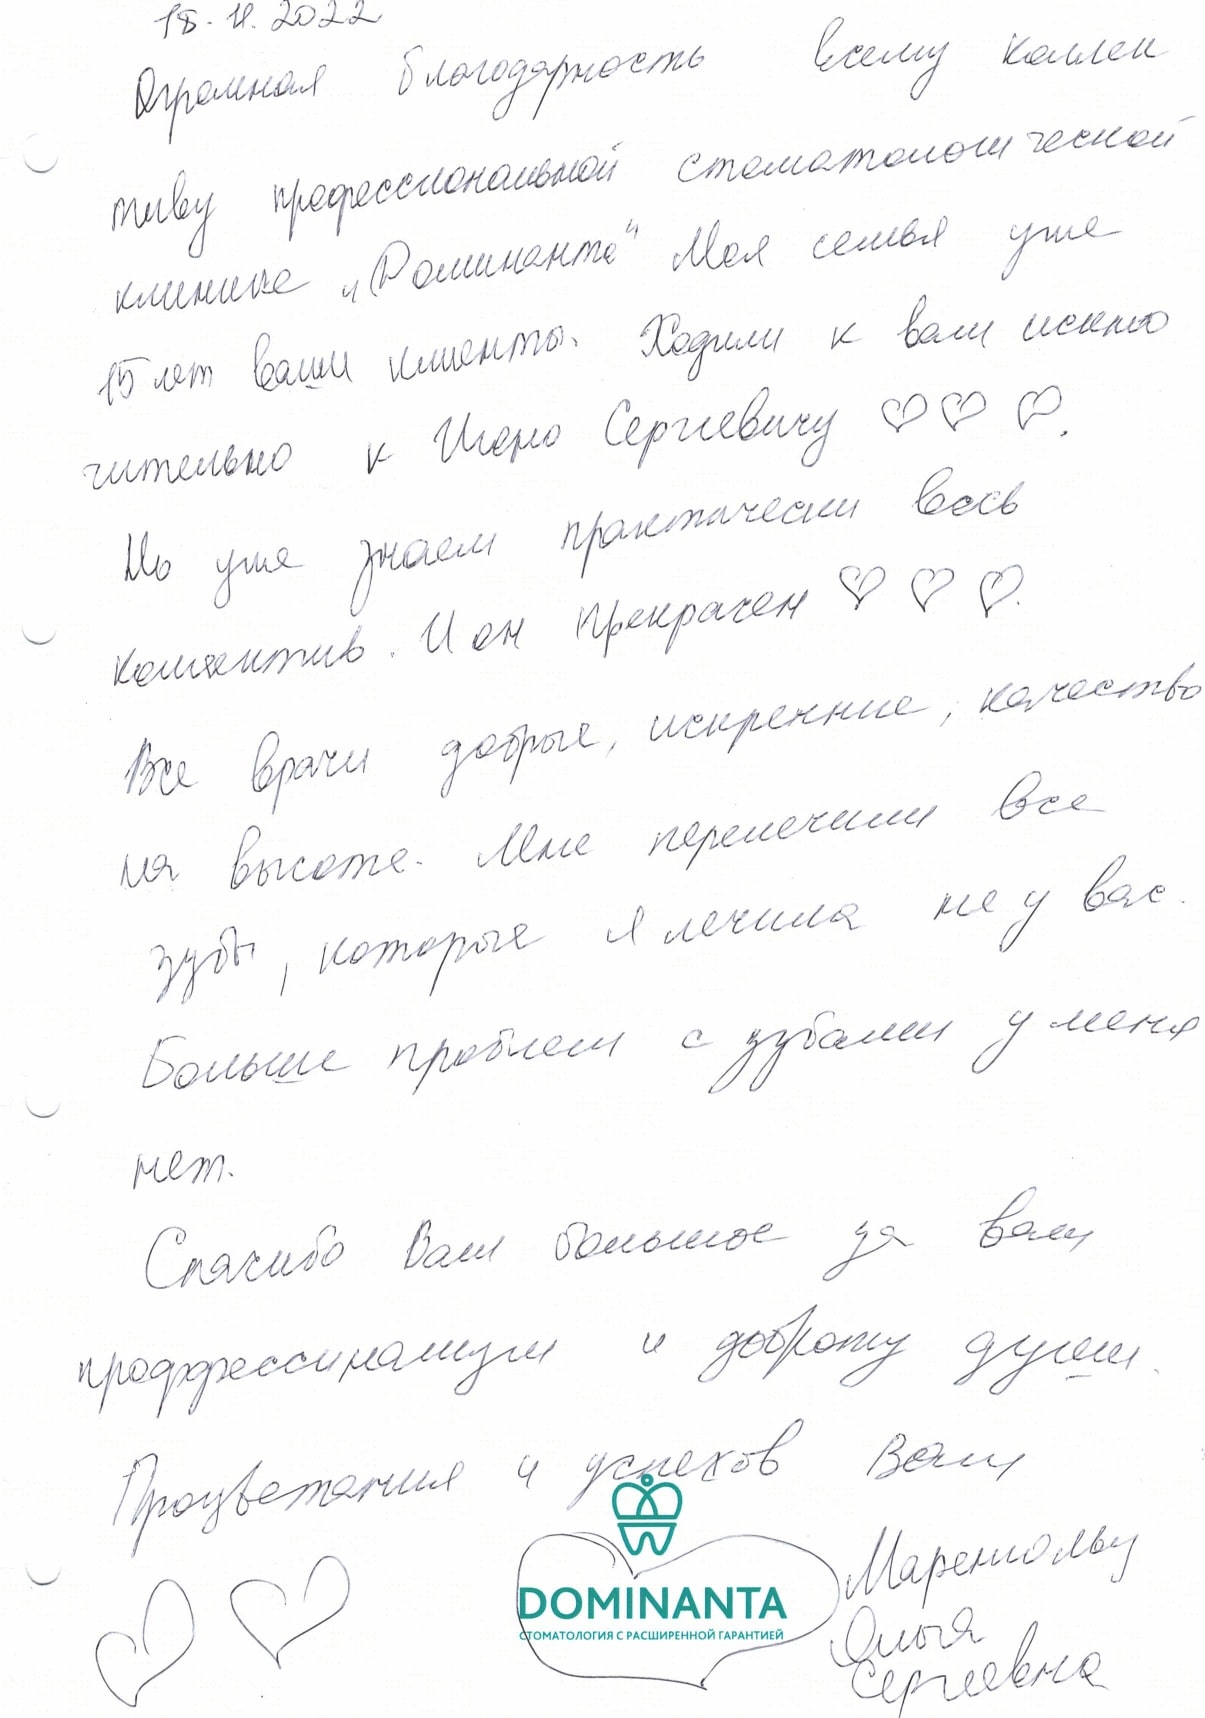 18.11.2022
Огромная благодарность всему коллек
тиву профессиональной стоматологической
клинике „Доминанта" Моя семья уже
15 лет ваши клиенты. Ходили к вам исклю
чительно к Сергеевичу ♡ ♡ ♡.
Но уже знаем практически весь
коллектив. И он прекрасен ♡ ♡ ♡.
Все врачи добрые, искренние, качество
на высоте. Мне перелечили все
зубы, которые я лечила не у вас.
Больше проблем с зубами у меня
нет.
Спасибо Вам большое за ваш
проффессинализм и доброту души.
Процветания и успехов Вам
Ольга
Сергеевна
DOMINANTA
СТОМАТОЛОГИЯ С РАСШИРЕННОЙ ГАРАНТИЕЙ